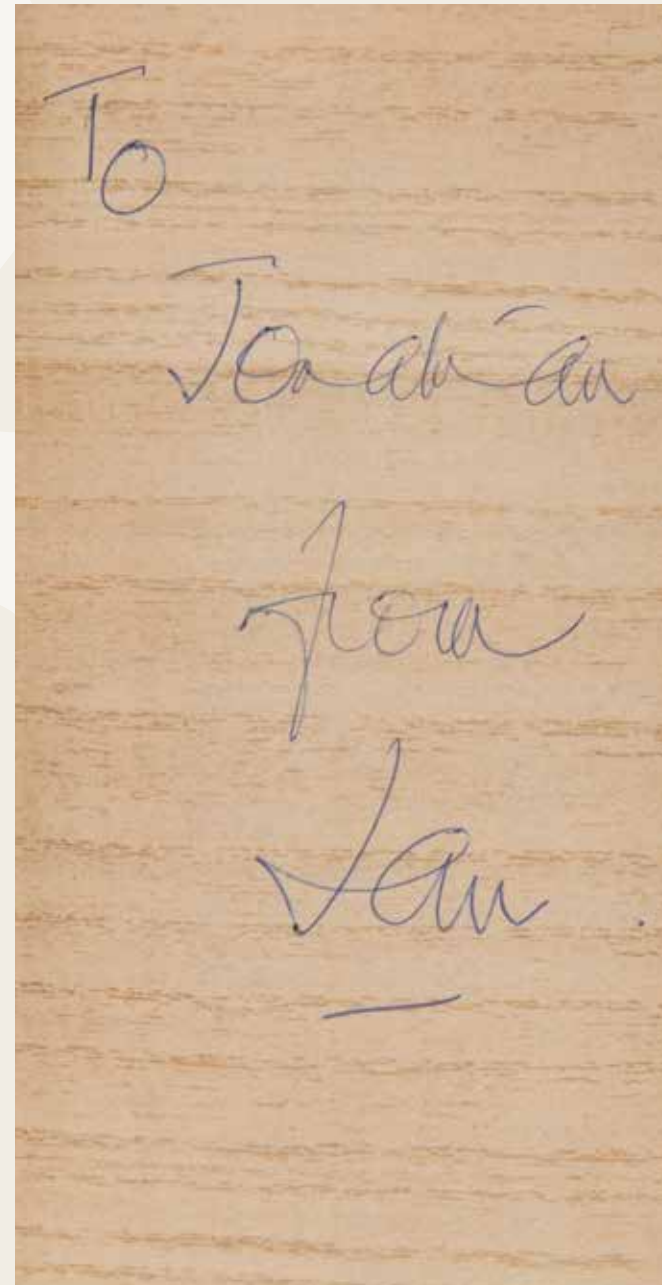 To
Jonathan
from
Ian